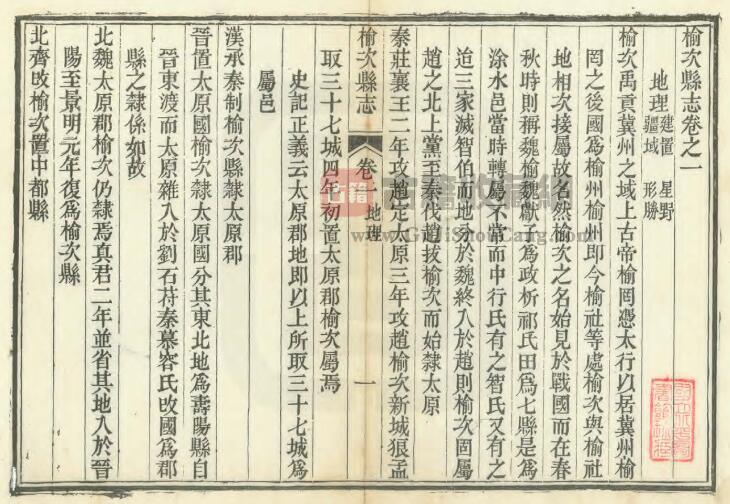 榆次縣志卷之一
地理 建置 星野
疆域 形勝
榆次禹貢冀州之域上古帝榆罔憑太行以居冀州榆
罔之後國爲榆州榆州即今榆社等處榆次與榆社
地相次接屬故名然榆次之名始見於戰國而在春
秋時則稱魏榆魏獻子爲政析祁氏田爲七縣是爲
涂水邑當時轉屬不常而中行氏有之智氏又有之
迨三家滅智伯而地分於魏終入於趙則榆次固屬
趙之北上黨至秦伐趙拔榆次而始隸太原
秦莊襄王二年攻趙定太原三年攻趙榆次新城狼孟
榆次縣志
卷一 地理
一
取三十七城四年初置太原郡榆次屬焉
史記正義云太原郡地即以上所取三十七城爲
屬邑
漢承秦制榆次縣隸太原郡
晉置太原國榆次隸太原國分其東北地爲壽陽縣自
晉東渡而太原雜入於劉石苻秦慕容氏改國爲郡
縣之隸係如故
北魏太原郡榆次仍隸焉真君二年並省其地入於晉
陽至景明元年復爲榆次縣
北齊改榆次置中都縣
古籍
古籍收藏網
www.GuJiShouCang.com